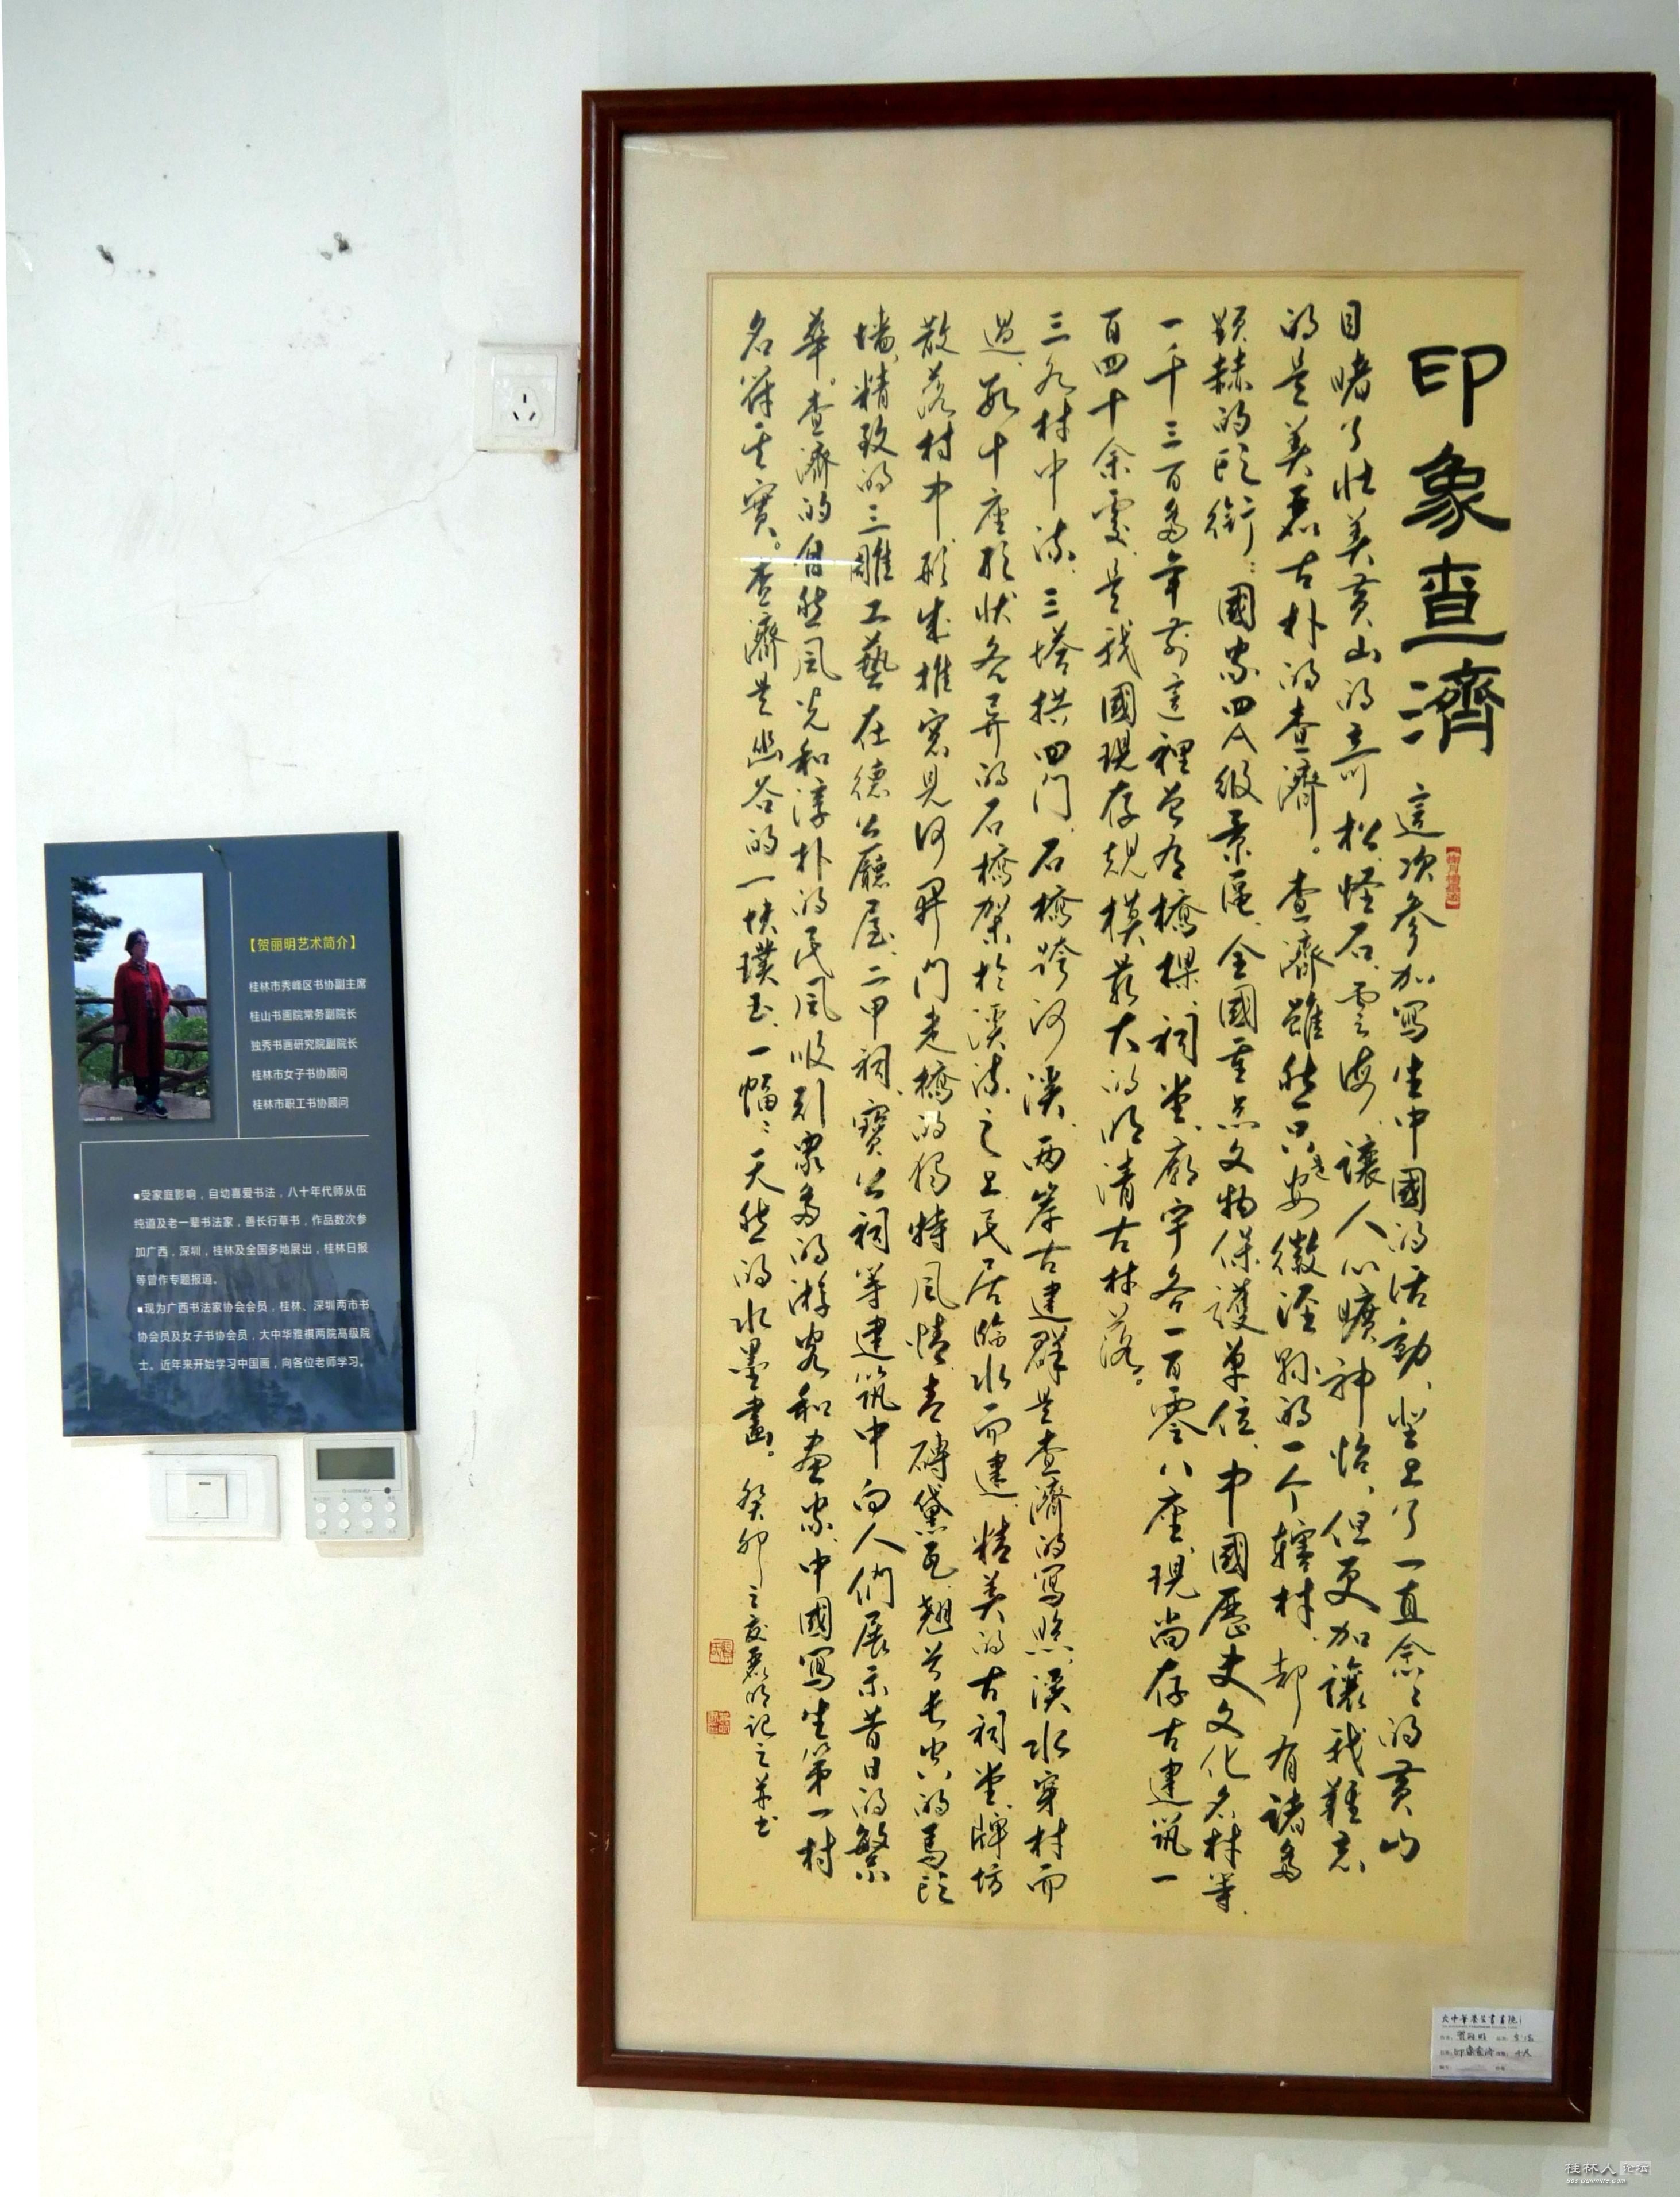 印象查濟
這次參加寫生中國的活動、登上了一直念〻的黃山
目睹了壯美黃山的奇松、怪石、雲海、讓人心曠神怡、但更加讓我難忘
的是美麗古朴的查濟。查濟雖然只是安徽涇縣的一个轄村、却有諸多
顯赫的頭銜：國家四A級景區、全國重点文物保護单位、中國歷史文化名村等、
一千三百多年前這裡曾有橋樑、祠堂、廟宇各一百零八座、現尚存古建筑一
百四十余處、是我國現存規模最大的明清古村落。
三水村中流、三塔拱四門、石橋跨河溪、兩岸古建群是查濟的寫照、溪水穿村而
過、數十座形狀各异的石橋架於溪流之上民居臨水而建、精美的古祠堂、牌坊
散落村中、形成推窗見河、開門走橋的獨特風情、青磚黛瓦、翹首長空的馬頭
墻、精致的三雕工藝在德公廳屋、二甲祠、寶公祠等建筑中向人們展示昔日的繁
華。查濟的自然風光和淳朴的民風吸引衆多的游客和畫家、中國寫生第一村
名符其實。查濟是幽谷的一块璞玉、一幅〻天然的水墨畫。癸卯之夏麗明記之并书
【贺丽明艺术简介】
桂林市秀峰区书协副主席
桂山书画院常务副院长
独秀书画研究院副院长
桂林市女子书协顾问
桂林市职工书协顾问
■受家庭影响，自幼喜爱书法，八十年代师从伍
纯道及老一辈书法家，善长行草书，作品数次参
加广西，深圳，桂林及全国多地展出，桂林日报
等曾作专题报道。
■现为广西书法家协会会员，桂林、深圳两市书
协会员及女子书协会员，大中华雅祺两院高级院
士。近年来开始学习中国画，向各位老师学习。
桂林人论坛